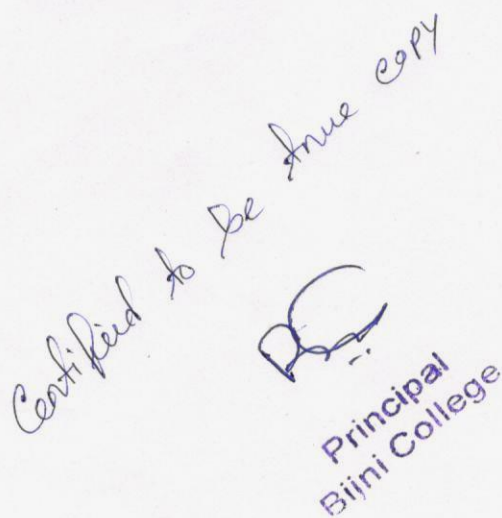 Certified to be true copy
Principal
Bijni College